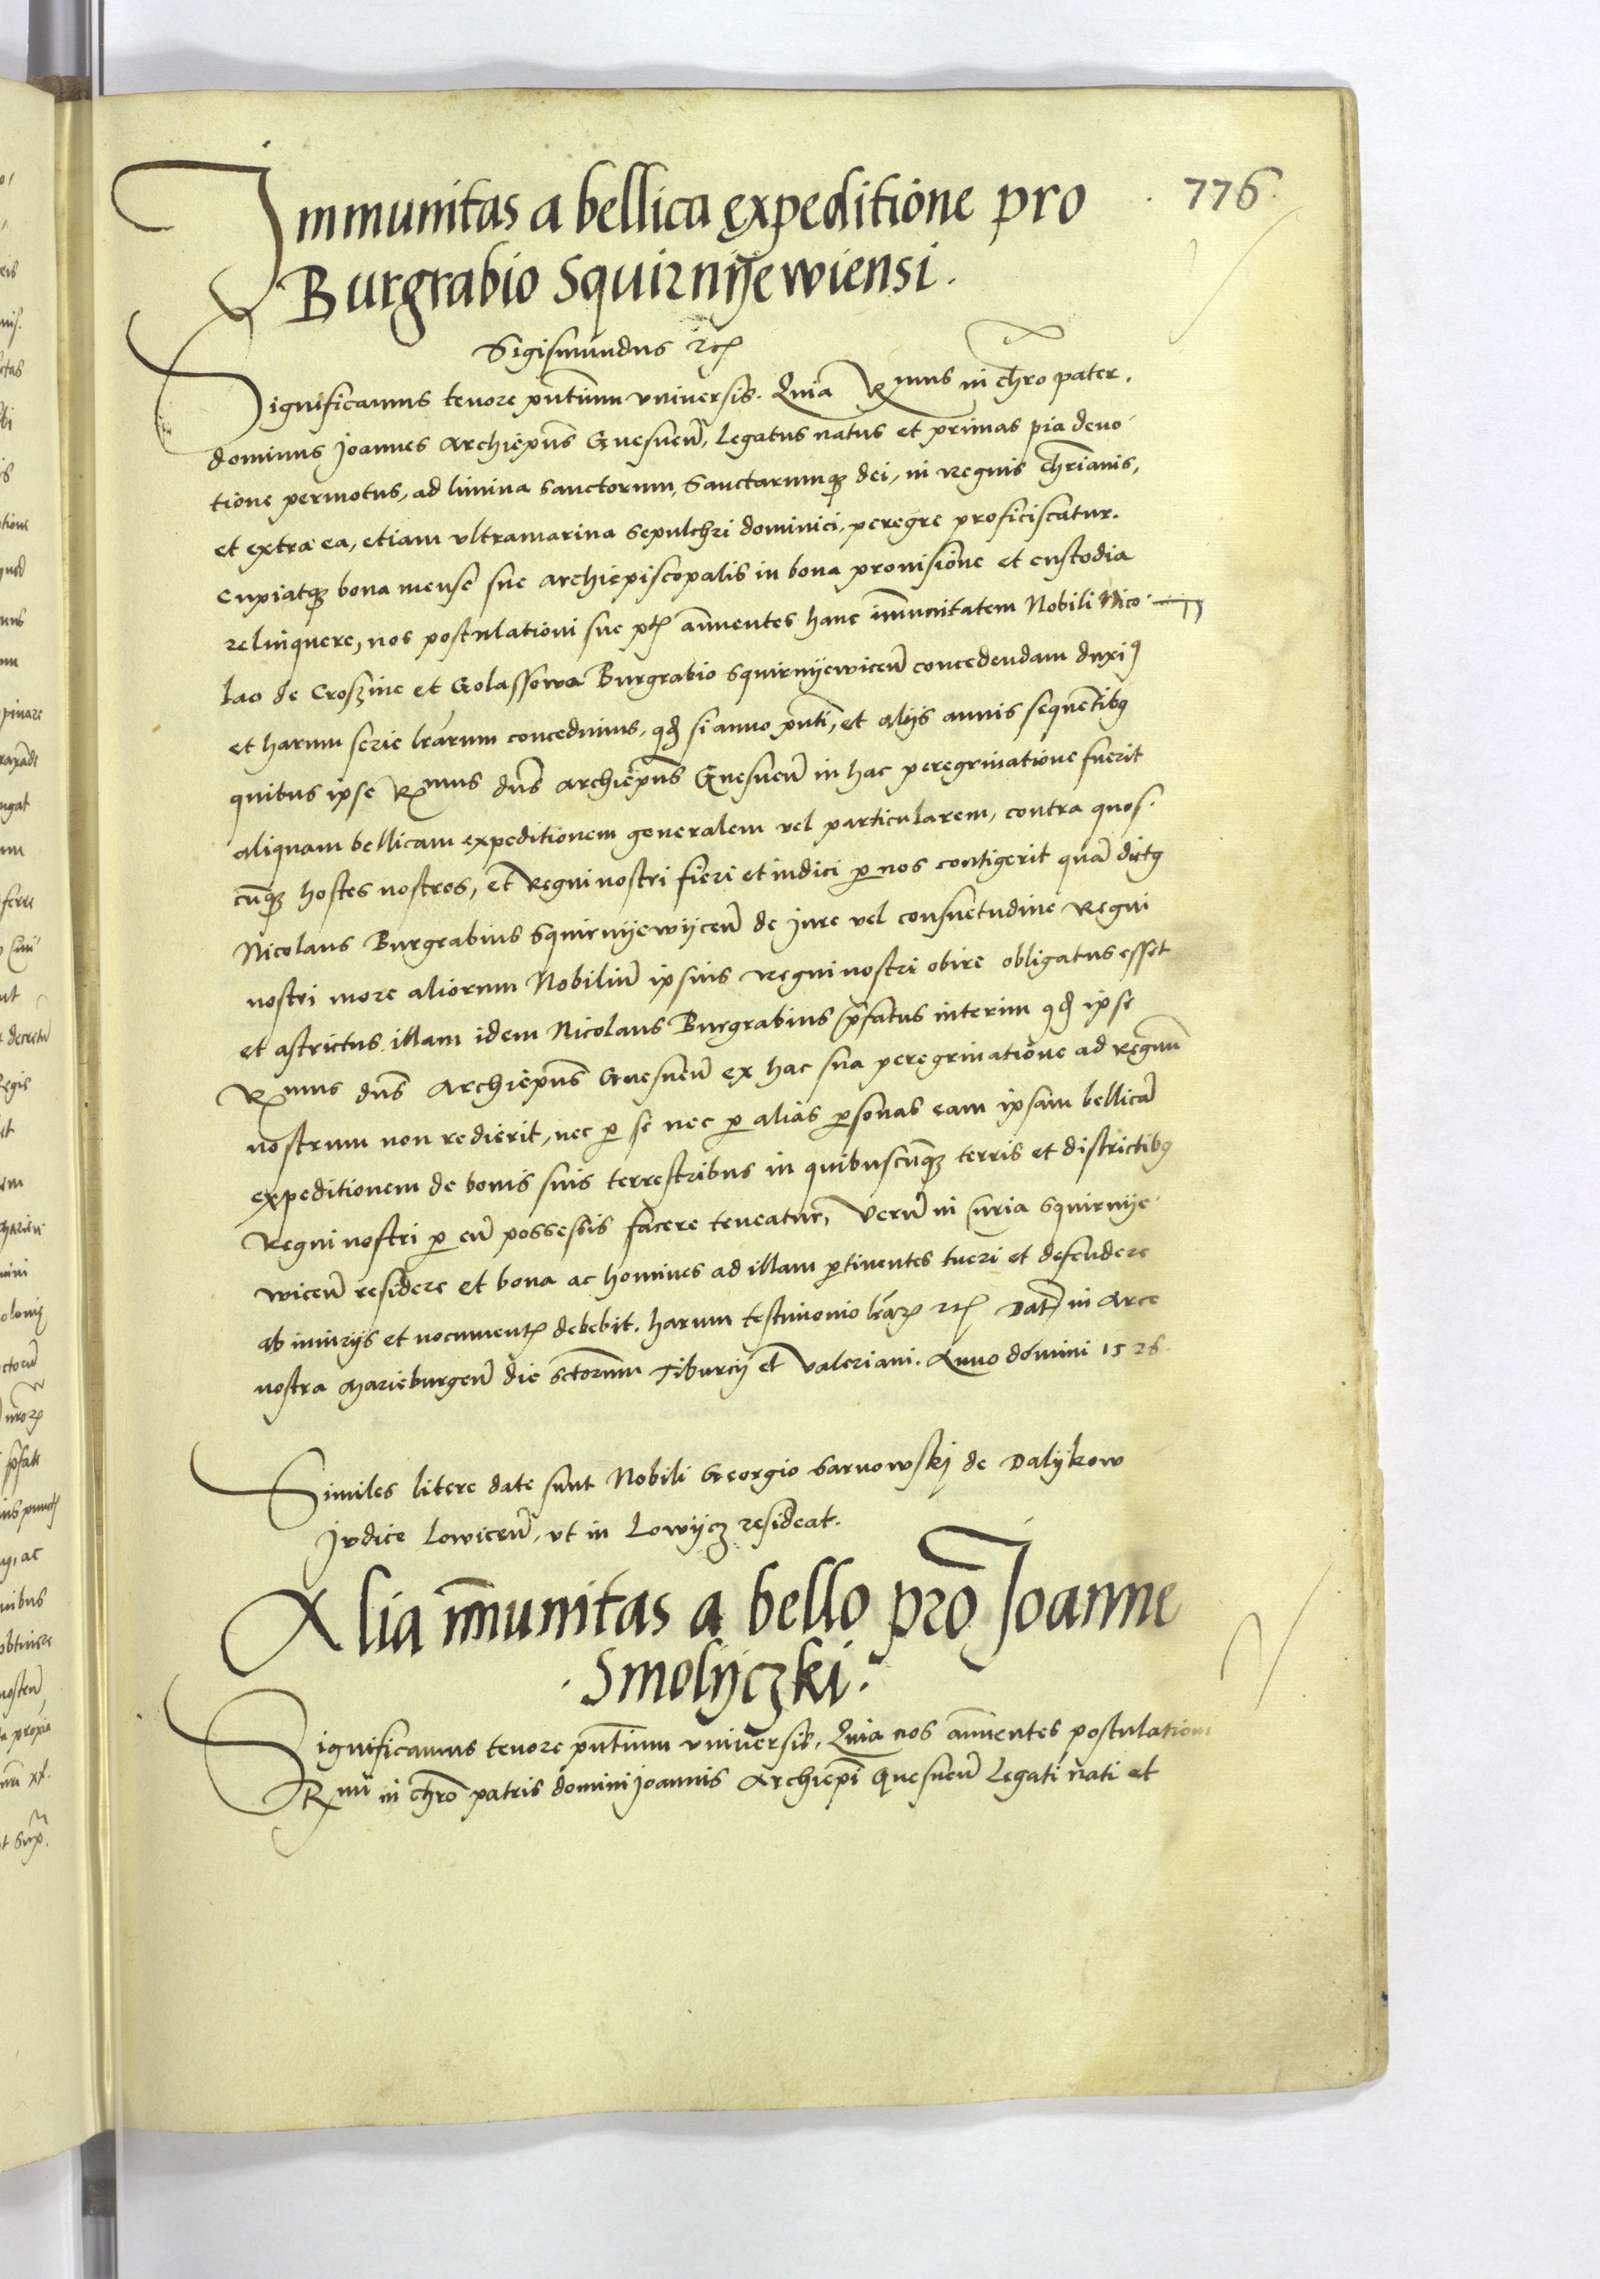 776
Immunitas a bellica expeditione pro
Burgrabio Squirnijewiensi.
Sigismundus etc
Significamus tenore pntium vniversis. Quia Rmus in chro pater.
dominus Joannes Archiepus Gnesnen, Legatus natus et primas pia devo
tione permotus, ad limina sanctorum, Sanctarumq dei, in Regnis chrianis,
et extra ea, etiam vltramarina sepulchri dominici, peregre proficiscatur.
Cupiatq bona mense sue archiepiscopalis in bona provisione et custodia
relinquere, nos postulationi sue annuentes hanc immunitatem Nobili Nico
lao de Croszine et Golassowa Burgrabio Squirnijewicen concedendam duxi
et harum serie lrarum concedimus, qd si anno pnti, et alijs annis sequentibus
quibus ipse Rmus dns Archiepus Gnesnen in hac peregrinatione fuerit
aliquam bellicam expeditionem generalem vel particularem, contra quos
cunq hostes nostros, et Regni nostri fieri et indici p nos contigerit quam dictus
Nicolaus Burgrabius Squirnijewijcen de Jure vel consuetudine Regni
nostri more aliorum Nobilium ipsius Regni nostri obire obligatus esset
et astrictus illam idem Nicolaus Burgrabius pfatus interim qd ipse
Rmus dns Archiepus Gnesnen ex hac sua peregrinatione ad regnum
nostrum non redierit, nec p se nec p alias psonas eam ipsam bellicam
expeditionem de bonis suis terrestribus in quibuscunq terris et districtibus
Regni nostri p eum possessis facere teneatur, Verum in Curia Squirnije
wicen residere et bona ac homines ad illam ptinentes tueri et defendere
ab iniurijs et nocumentis debebit. harum testimonio lrar etc Dat in Arce
nostra Marieburgen die sctorum Tiburcij et Valeriani. Anno domini 1526
Similes litere date sunt Nobili Georgio Sarnowskj de Dalijkow
Judice Lowicen, vt in Lowijcz resideat.
Alia immunitas a bello pro Joanne
Smolijczki.
Significamus tenore pntium vniversis, Quia nos annuentes postulationi
Rmi in chro patris domini Joannis Archiepi Gnesnen Legati nati et